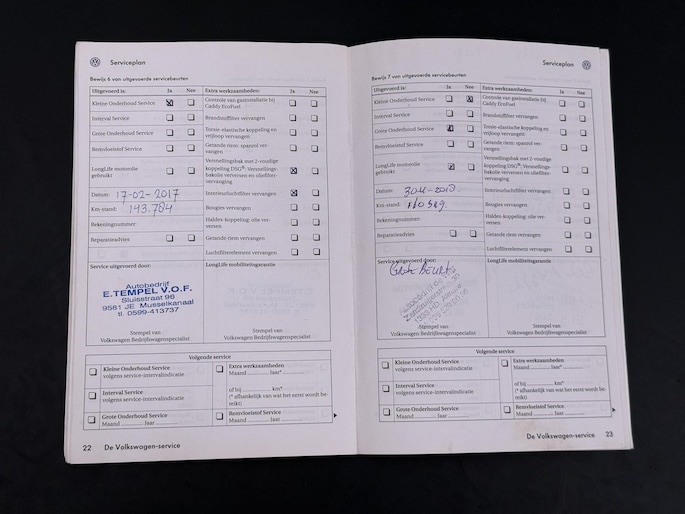 Serviceplan
Bewijs 6 van uitgevoerde servicebeurten
Uitgevoerd is: Ja Nee
Kleine Onderhoud Service
Interval Service
Grote Onderhoud Service
Remvloeistof Service
LongLife motorolie
gebruikt
Datum: 17-02-2017
Km-stand: 143.784
Rekeningnummer:
Reparatieadvies
Extra werkzaamheden: Ja Nee
Controle van gasinstallatie bij
Caddy EcoFuel
Brandstoffilter vervangen
Torsie-elastische koppeling en
vrijloop vervangen
Getande riem: spanrol ver-
vangen
Versnellingsbak met 2-voudige
koppeling DSG®: Versnellings-
bakolie verversen en oliefilter-
vervanging
Interieurluchtfilter vervangen
Bougies vervangen
Haldex-koppeling: olie ver-
versen
Getande riem vervangen
Luchtfilterelement vervangen
Service uitgevoerd door:
Autobedrijf
E.TEMPEL V.O.F.
Sluisstraat 96
9581 JE Musselkanaal
tl. 0599-413737
Stempel van
Volkswagen Bedrijfswagenspecialist
LongLife mobiliteitsgarantie
Stempel van
Volkswagen Bedrijfswagenspecialist
Volgende service
Kleine Onderhoud Service
volgens service-intervalindicatie
Interval Service
volgens service-intervalindicatie
Grote Onderhoud Service
Maand ............ Jaar
Extra werkzaamheden
Maand ............ Jaar* ............
of bij ............ km*
(* afhankelijk van wat het eerst wordt be-
reikt)
Remvloeistof Service
Maand ............ Jaar ............
22 De Volkswagen-service
Serviceplan
Bewijs 7 van uitgevoerde servicebeurten
Uitgevoerd is: Ja Nee
Kleine Onderhoud Service
Interval Service
Grote Onderhoud Service
Remvloeistof Service
LongLife motorolie
gebruikt
Datum:
Km-stand:
Rekeningnummer:
Reparatieadvies
Extra werkzaamheden: Ja Nee
Controle van gasinstallatie bij
Caddy EcoFuel
Brandstoffilter vervangen
Torsie-elastische koppeling en
vrijloop vervangen
Getande riem: spanrol ver-
vangen
Versnellingsbak met 2-voudige
koppeling DSG®: Versnellings-
bakolie verversen en oliefilter-
vervanging
Interieurluchtfilter vervangen
Bougies vervangen
Haldex-koppeling: olie ver-
versen
Getande riem vervangen
Luchtfilterelement vervangen
Service uitgevoerd door:
Grote Beurt
Autobedrijf
Stempel van
Volkswagen Bedrijfswagenspecialist
LongLife mobiliteitsgarantie
Stempel van
Volkswagen Bedrijfswagenspecialist
Volgende service
Kleine Onderhoud Service
volgens service-intervalindicatie
Interval Service
volgens service-intervalindicatie
Grote Onderhoud Service
Maand ............ Jaar ............
Extra werkzaamheden
Maand ............ Jaar* ............
of bij ............ km*
(* afhankelijk van wat het eerst wordt be-
reikt)
Remvloeistof Service
Maand ............ Jaar ............
De Volkswagen-service 23